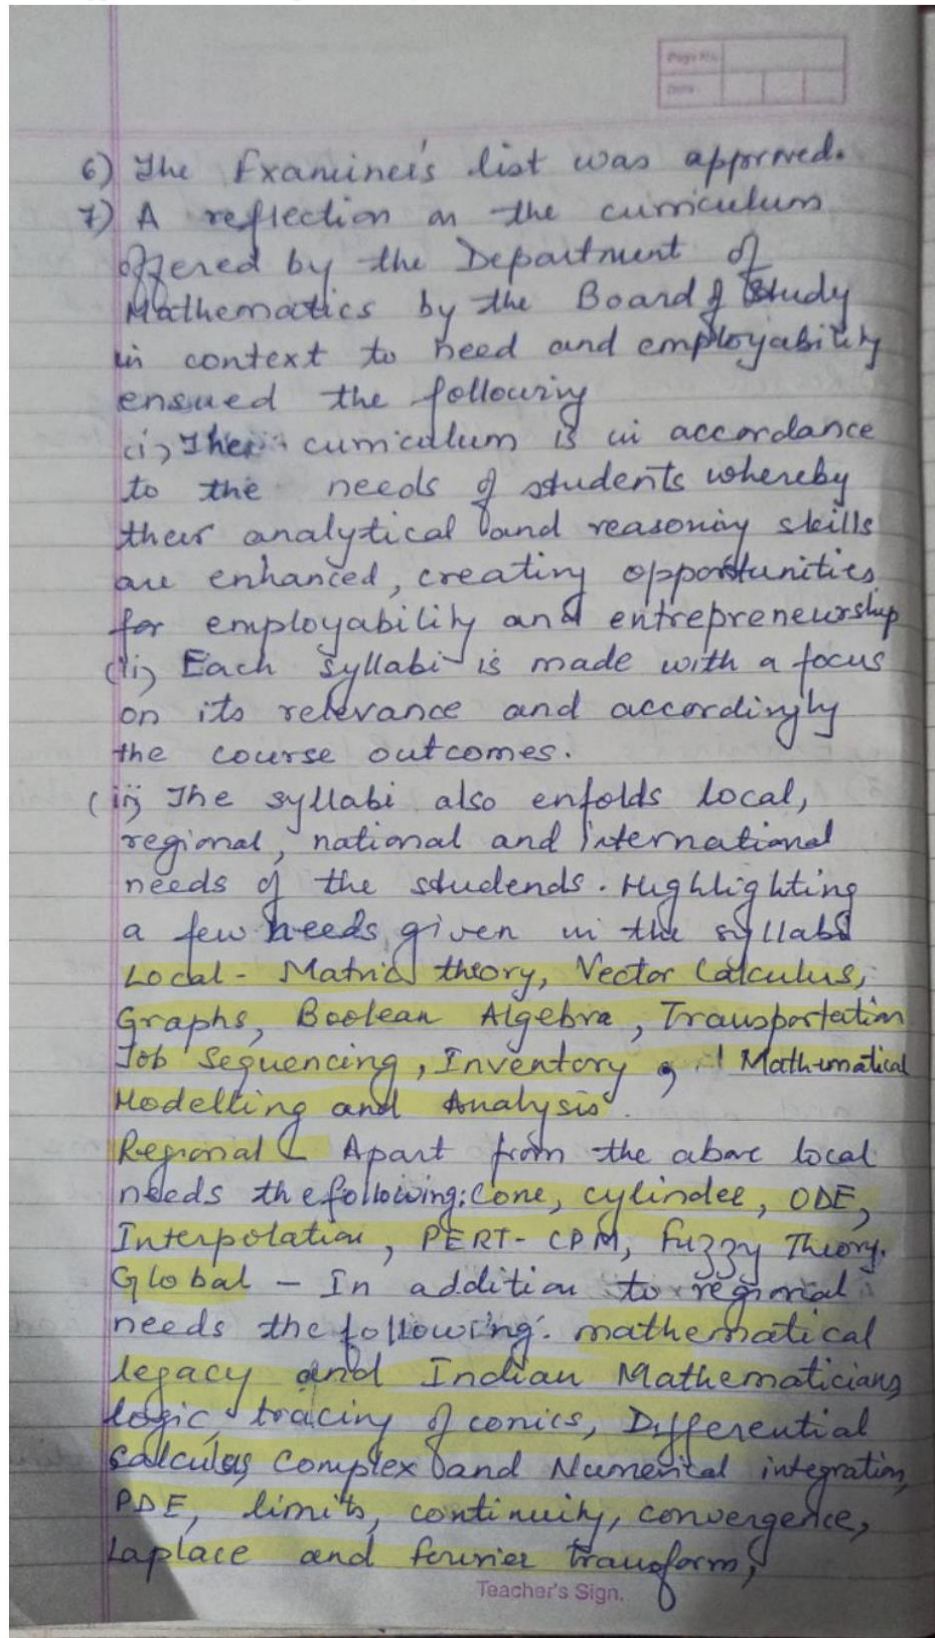 Page No.
Date
6) The Examiner's list was approved.
7) A reflection on the curriculum
offered by the Department of
Mathematics by the Board of Study
in context to need and employability
ensued the following
(i) Their curriculum is in accordance
to the needs of students whereby
their analytical and reasoning skills
are enhanced, creating opportunities
for employability and entrepreneurship
(ii) Each syllabi is made with a focus
on its relevance and accordingly
the course outcomes.
(iii) The syllabi also enfolds local,
regional, national and international
needs of the studends. Highlighting
a few needs given in the syllabi
Local - Matrix theory, Vector Calculus,
Graphs, Boolean Algebra, Transportation
Job Sequencing, Inventory, Mathematical
Modelling and Analysis.
Regional - Apart from the above local
needs the following: Cone, cylinder, ODE,
Interpolation, PERT-CPM, Fuzzy Theory.
Global - In addition to regional
needs the following: mathematical
legacy and Indian Mathematicians,
logic, tracing of conics, Differential
Calculus, Complex and Numerical integration,
PDE, limits, continuity, convergence,
Laplace and fourier transform,
Teacher's Sign.